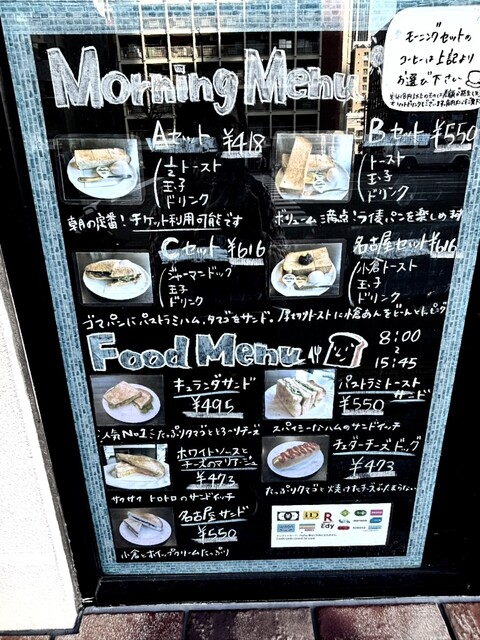 モーニングセットの
コーヒーは上記より
お選び下さい
Morning Menu
Aセット ¥418
½トースト
玉子
ドリンク
朝の定番！チケット利用可能です
Bセット ¥550
トースト
玉子
ドリンク
ボリューム満点！ライ麦パンを楽しめます
Cセット ¥616
ジャーマンドッグ
玉子
ドリンク
ゴマパンにパストラミハム、タマゴをサンド。
名古屋セット ¥616
小倉トースト
玉子
ドリンク
厚切りトーストに小倉あんをどーんとトッピング
Food Menu
8:00
～
15:45
キュランダサンド
¥495
人気No1！たっぷりタマゴととろーりチーズ
パストラミトースト
サンド
¥550
スパイシーなハムのサンドイッチ
ホワイトソースと
チーズのマリアージュ
¥473
サクサクトロトロのサンドイッチ
チェダーチーズドッグ
¥473
名古屋サンド
¥550
小倉とホイップクリームたっぷり
iD
R
Edy